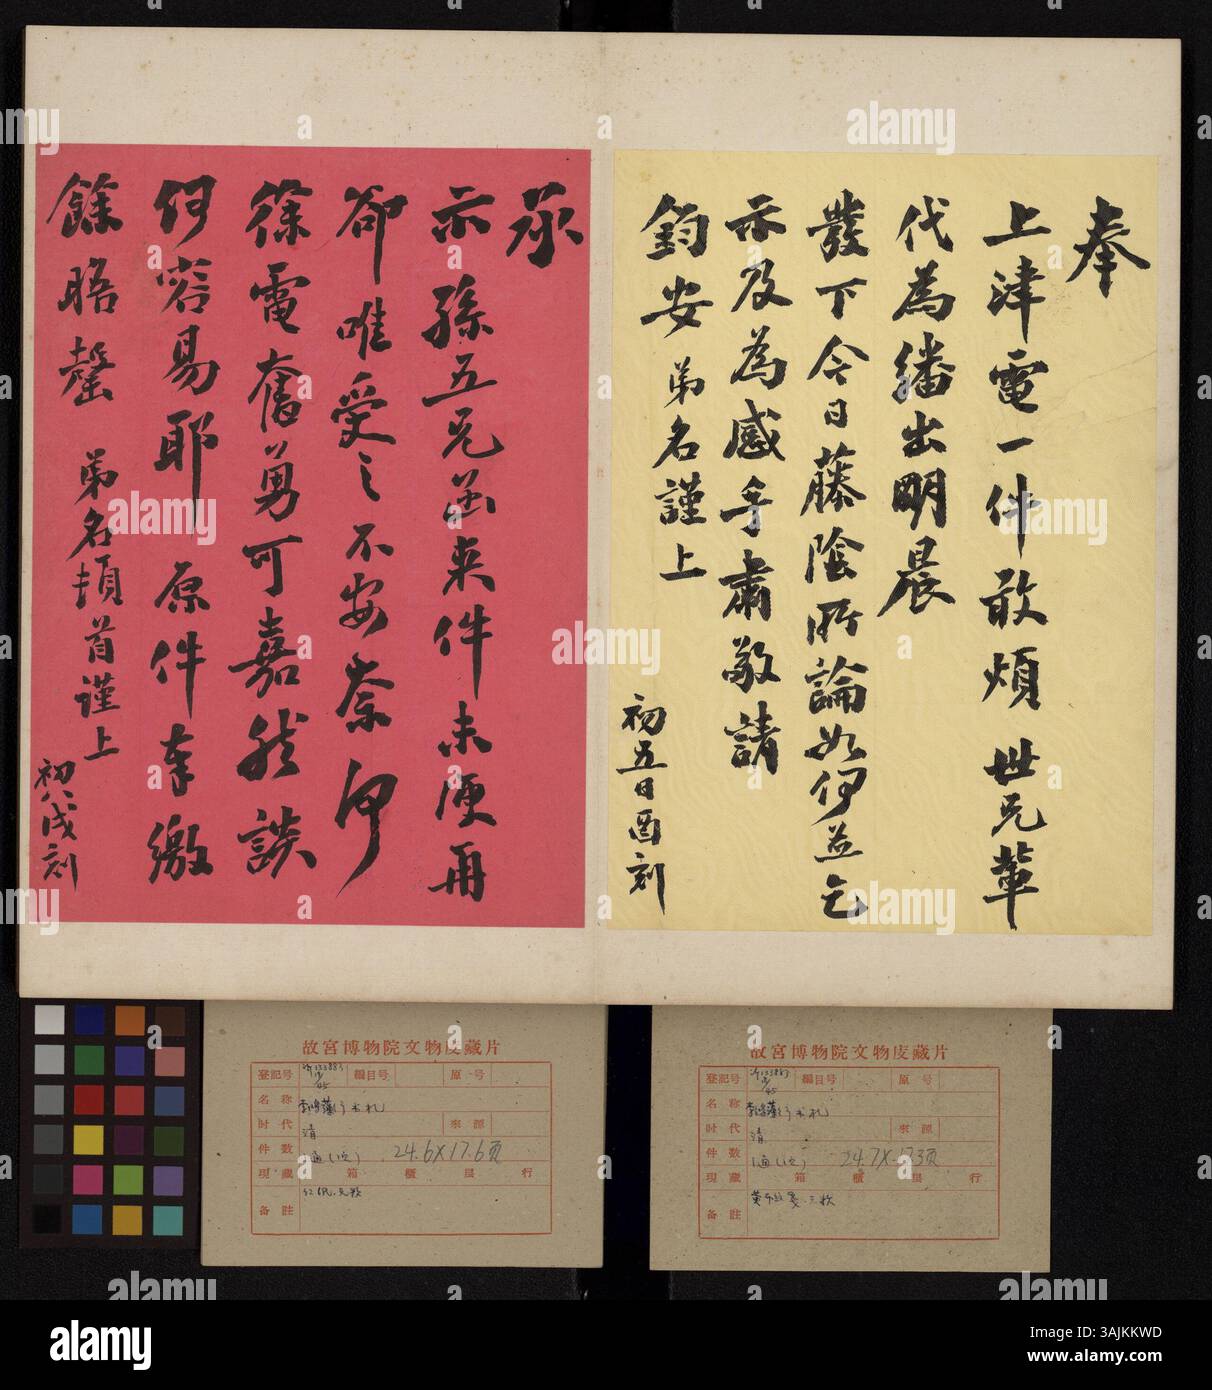 奉
上津電一件敢煩世兄輩
代為繙出明晨
發下今日藤陰所論如何並乞
示及為感手肅敬請
鈞安 弟名謹上
初五日酉刻
承
示孫五兄函来件未便再
卻唯受之不安柰何
徐電奮勇可嘉然談
何容易耶 原件奉繳
餘晤罄 弟名頓首謹上
初八戌刻
故宮博物院文物庋藏片
登記号 編目号 原号
名称 李鴻藻行书札
时代 清 來源
件数 1通(1页) 24.6X17.6页
現藏 箱 櫃 层 行
备註
故宮博物院文物庋藏片
登記号 編目号 原号
名称 李鴻藻行书札
时代 清 來源
件数 1通(1页) 24.7X17.3页
現藏 箱 櫃 层 行
备註
alamy
3AJKKWD
www.alamy.com